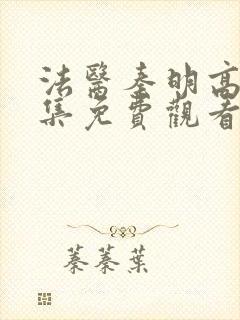 法醫秦明高
集免費觀看
蓁蓁葉